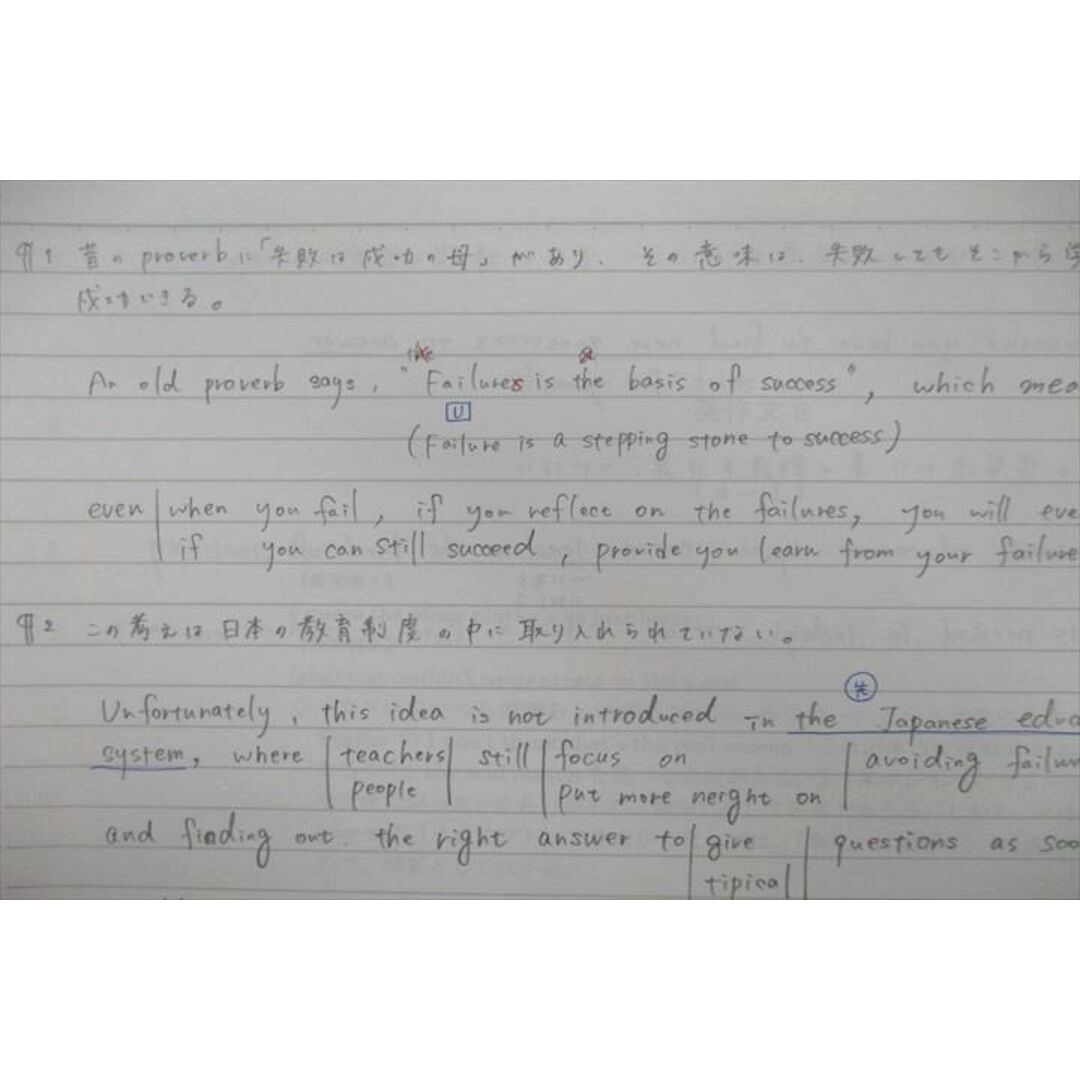 ¶1 昔の proverb に「失敗は成功の母」があり、その意味は、失敗してもそこから学
成功できる。
the a
An old proverb says, "Failures is the basis of success", which mea
U
(Failure is a stepping stone to success)
even when you fail, if you reflect on the failures, you will eve
if you can still succeed, provide you learn from your failure
¶2 この考えは日本の教育制度の中に取り入れられていない。
先
Unfortunately, this idea is not introduced in the Japanese educa
system, where teachers still focus on avoiding failur
people put more neight on
and finding out the right answer to give questions as soo
tipical